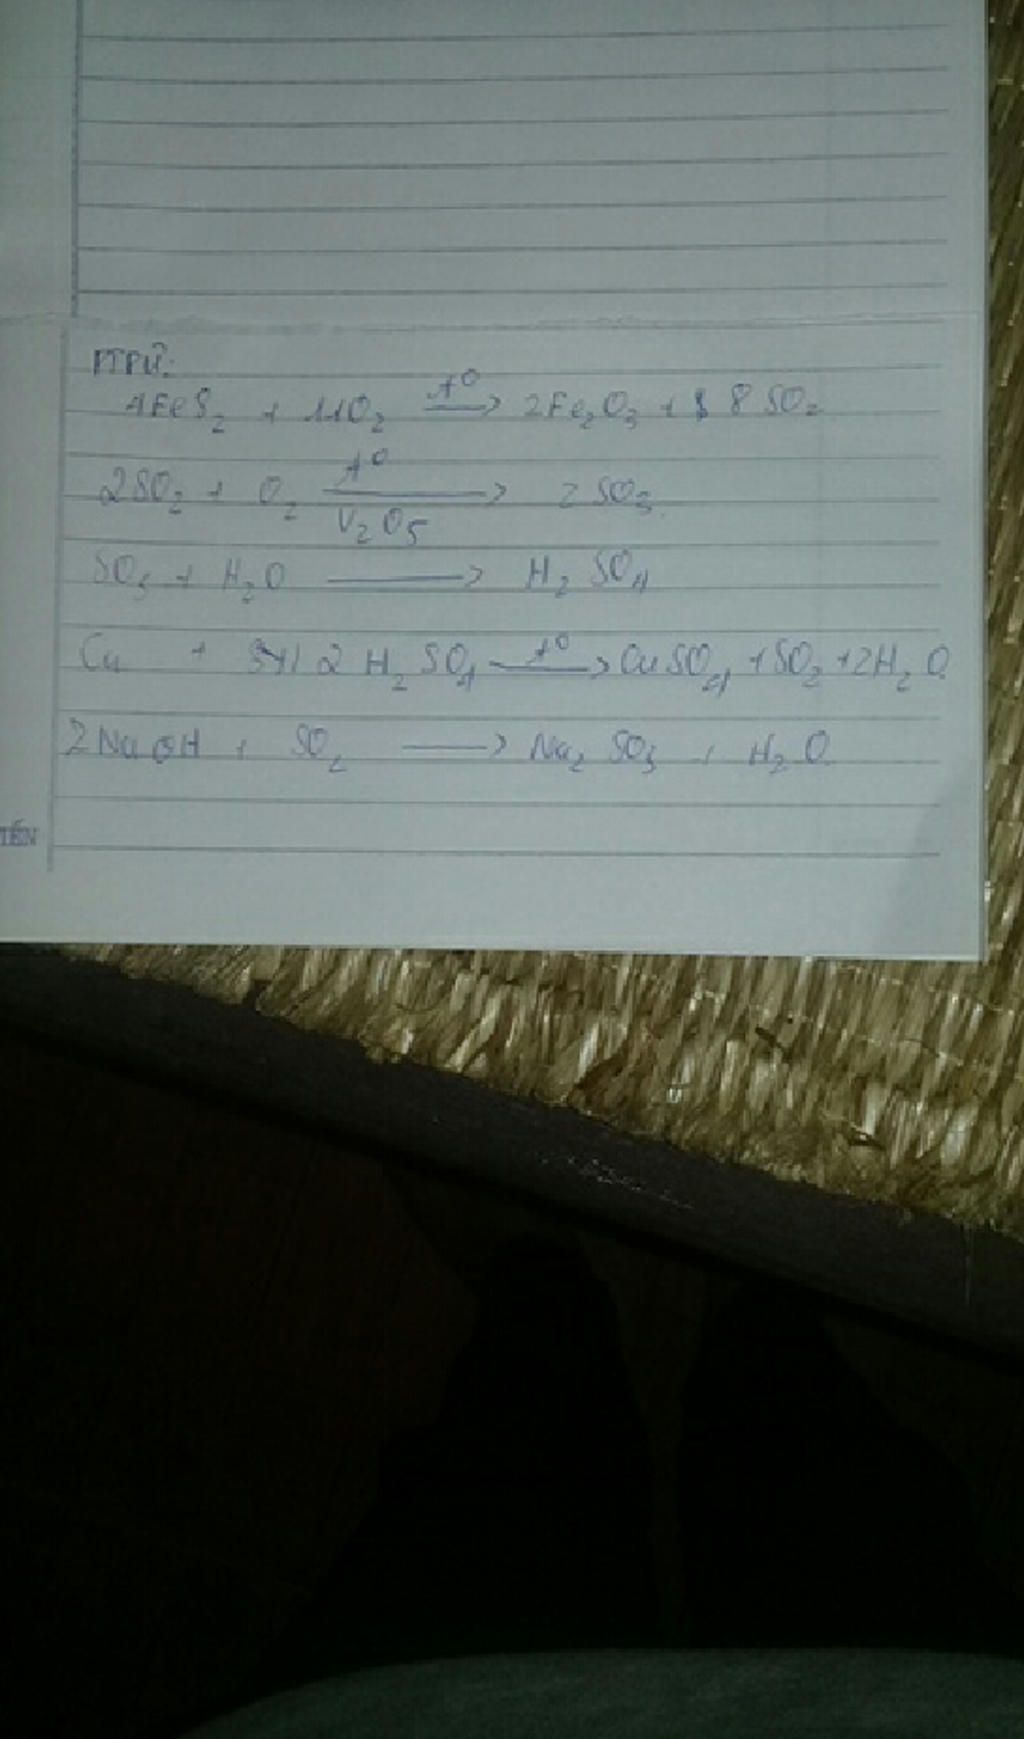 PTPƯ:
4FeS2 + 11O2 t° → 2Fe2O3 + 8SO2
2SO2 + O2 t° → V2O5 2SO3
SO3 + H2O → H2SO4
Cu + 2H2SO4 t° → CuSO4 + SO2 + 2H2O
2NaOH + SO2 → Na2SO3 + H2O